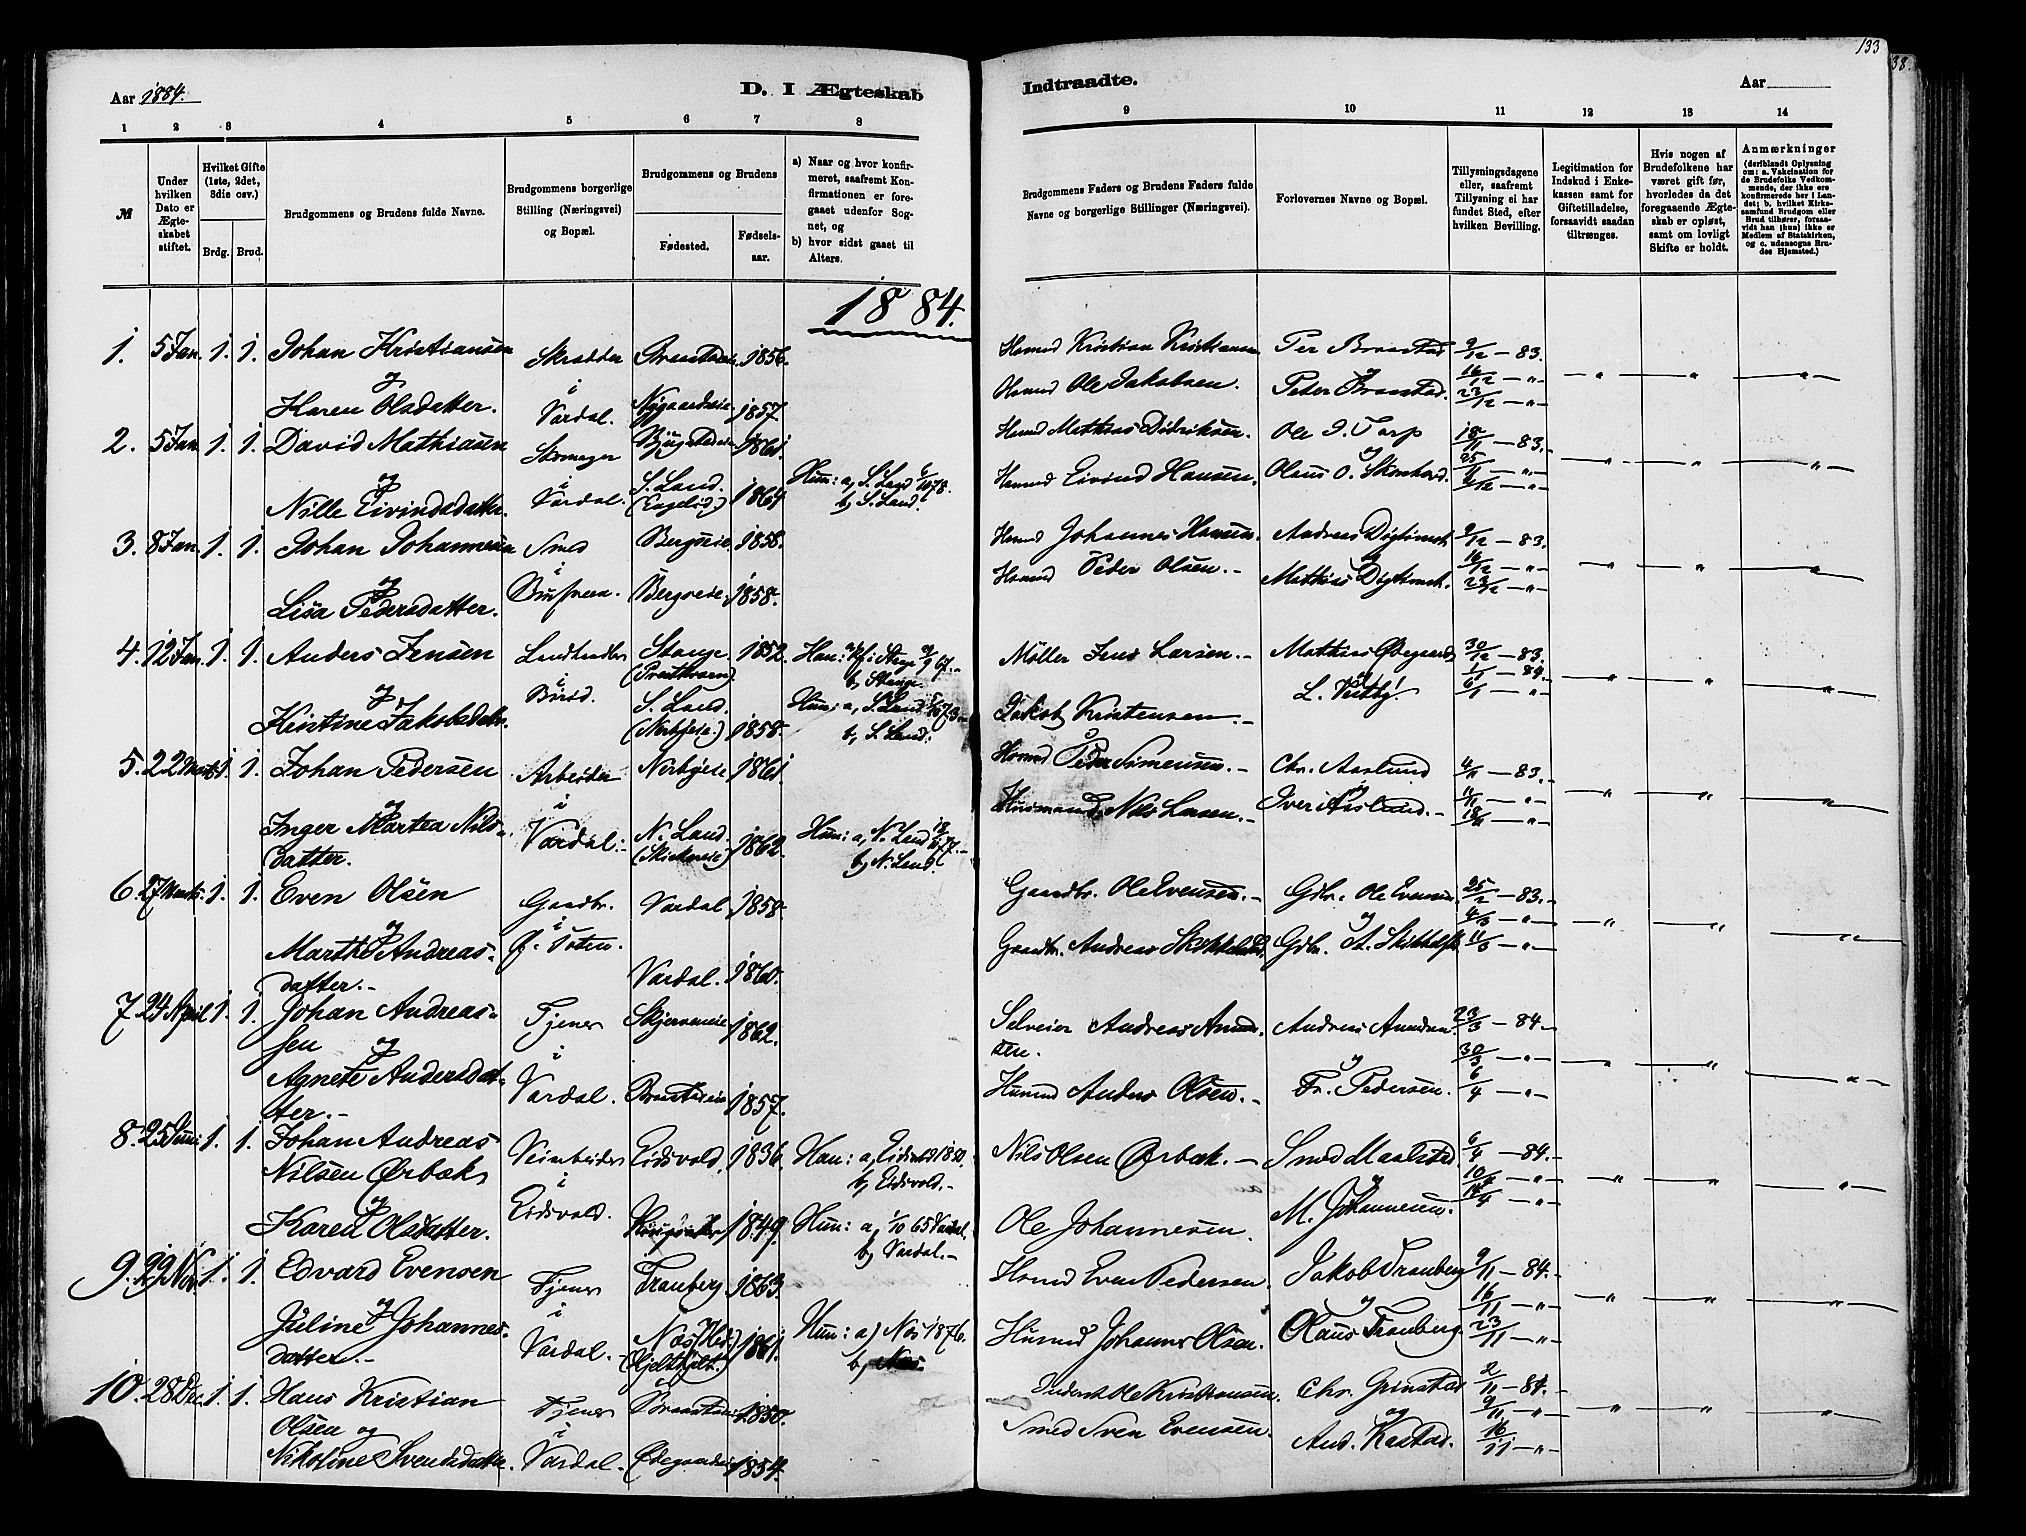 133
38.
Aar 1884.
D. I Ægteskab
Indtraadte.
Aar
1 2 3 4 5 6 7 8
9 10 11 12 13 14
№
Under hvilken Dato er Ægteskabet stiftet.
Hvilket Gifte (1ste, 2det, 3die osv.)
Brdg. Brud.
Brudgommens og Brudens fulde Navne.
Brudgommens borgerlige Stilling (Næringsvei) og Bopæl.
Brudgommens og Brudens
Fødested.
Fødselsaar.
a) Naar og hvor konfirmeret, saafremt Konfirmationen er foregaaet udenfor Sognet, og
b) hvor sidst gaaet til Alters.
Brudgommens Faders og Brudens Faders fulde Navne og borgerlige Stillinger (Næringsvei).
Forlovernes Navne og Bopæl.
Tillysningsdagene eller, saafremt Tillysning ei har fundet Sted, efter hvilken Bevilling.
Legitimation for Indskud i Enkekassen samt for Giftetilladelse, forsaavidt saadan tiltrænges.
Hvis nogen af Brudefolkene har været gift før, hvorledes da det foregaaende Ægteskab er opløst, samt om lovligt Skifte er holdt.
Anmærkninger (deriblandt Oplysning om: a. Vakcination for de Brudefolks Vedkommende, der ikke ere konfirmerede her i Landet; b. hvilket Kirkesamfund Brudgom eller Brud tilhører, forsaavidt han (hun) ikke er Medlem af Statskirken, og c. udensogns Brudes Hjemsted.)
1884.
1. 5 Jan. 1. 1. Johan Kristiansen Skrædder Braastadeie. 1856. Husmd Kristian Kristiansen Per Braastad 9/12 — 83.
og i Husmd Ole Jakobsen. og 16/12 — „ —
Karen Olsdatter. Vardal. Nygaardseie 1857. Peter Braastad. 23/12 — „ —
2. 5 Jan. 1. 1. David Mathiasen Skomager Bjugstadeie 1861. Husmd Mathias Didriksen. Ole P. Torp 18/11 — 83.
og i S. Land. Hun: a, S. Land 6/10 78. Husmd Eivind Hansen. Olaus O. 25/11 — „ —
Nille Eivindsdatter. Vardal. 1864 b, S. Land. 2/12 — „ —
3. 8 Jan. 1. 1. Johan Johannesen Smed Bergseie. 1858. Husmd Johannes Hansen. Andreas 9/12 — 83.
og i Husmd Peder Olsen. — og 16/12 — „ —
Lisa Pedersdatter. Bergseie. 1858. Mathias 23/12 — „ —
4. 12 Jan. 1. 1. Anders Jensen Landhandler Stange 1852. Han: a, Stange 67. — Møller Jens Larsen. — Mathias Ødegaard 30/12 — 83.
og i b, Stange. 1/1 — 84.
Kristine Jakobsdatter. Birid. S. Land. 1858. Hun: a, S. Land 73. — Jakob Kristensen — L. Vestby 6/1 — „ —
b, S. Land.
5. 22 Marts 1. 1. Johan Pedersen Arbeider Norbyeie 1861 Husmd Peder Simensen. — Chr. Aaslund 4/11 — 83. —
og i og 11/11 — „ —
Inger Martea Nilsdatter. Vardal. — N. Land. 1862. Hun: a, N. Land 77. — Husmand Nils Larsen. — Iver Aaslund. — 18/11 — „ —
b, N. Land.
6. 27 Marts. 1. 1. Even Olsen Gaardbr. Vardal 1858. Gaardbr. Ole Evensen. — Gdbr. Ole Evensen 25/2 — 83. —
og i og 4/3 — „ —
Marthe Andreasdatter. — Ø. Toten. Vardal. 1860. Gaardbr. Andreas Gdbr. A. 11/3 — „ —
7. 24 April 1. 1. Johan Andreassen Tjener Skjerveneie 1862. Selveier Andreas Amundsen. Andreas Amundsen. 23/3 — 84. —
og i og 30/3 — „ —
Agnete Andersdatter. — Vardal. Braastadeie 1857. Husmd Anders Olsen. — Fr. Pedersen. 6/4 — „ —
8. 25 Juni 1. 1. Johan Andreas Nilsen Ørbæk Veiarbeider Eidsvold. 1836. Han: a, Eidsvold 1850. Nils Olsen Ørbæk. — Smed 6/4 — 84. —
og i b, Eidsvold. — og 10/4 — „ —
Karen Olsdatter. Eidsvold. 1849. Hun: a, 1/10 65 Vardal. Ole Johannesen. M. Johannesen. 14/4 — „ —
b, Vardal. —
9. 29 Nov. 1. 1. Edvard Evensen Tjener Tranberg 1863. Husmd Even Pedersen. Jakob Tranberg 9/11 — 84. —
og i og 16/11 — „ —
Juline Johannesdatter. — Vardal. Næs Hed. 1861. Hun: a) Næs 1876. Husmd Johannes Olsen. Olaus Tranberg. 23/11 — „ —
b, Næs.
10. 28 Dec. 1. 1. Hans Kristian Olsen og Tjener Braastadeie 1850. Inderst Ole Kristiansen. Chr. Grinstad 2/11 — 84. —
i og 9/11 — „ —
Nikoline Svendsdatter. Vardal. Ødegaardseie 1854. Smed Sven Evensen. And. Kastad. 16/11 — „ —